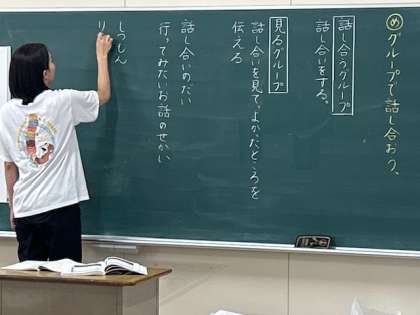 めグループで話し合おう。
話し合うグループ
話し合いをする。
見るグループ
話し合いを見て、よかったところを
伝える
話し合いのだい
行ってみたいお話のせかい
しつもん
り